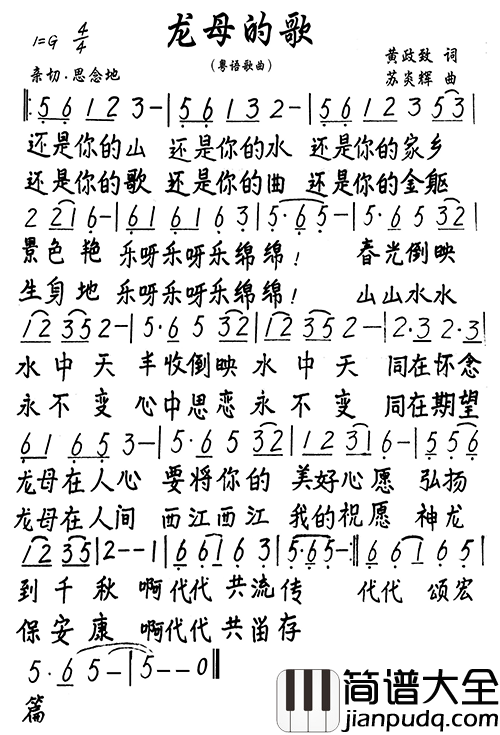 龙母的歌
1=G 4/4
(粤语歌曲)
黄政致 词
亲切.思念地
苏炎辉 曲
‖: 5 6 1 2 3 - | 5 6 1 2 3 - | 5 6 1 2 3 5 3 |
还是你的山 还是你的水 还是你的家乡
还是你的歌 还是你的曲 还是你的金躯
2 2 1 6 - | 6 1 6 1 6 3 | 5 · 6 5 - | 5 · 6 5 3 2 |
景色艳 乐呀乐呀乐绵绵! 春光倒映
生身地 乐呀乐呀乐绵绵! 山山水水
1 2 3 5 2 - | 5 · 6 5 3 2 | 1 2 3 2 1 - | 2 · 3 2 · 3 |
水中天 丰收倒映 水中天 同在怀念
永不变 心中思恋 永不变 同在期望
6 1 6 5 3 - | 5 · 6 5 3 2 | 1 2 3 1 6 - | 5 5 6 |
龙母在人心 要将你的 美好心愿 弘扬
龙母在人间 西江西江 我的祝愿 神龙
1 2 3 5 | 2 - - 1 | 6 6 1 6 3 | 5 · 6 5 - :‖ 6 6 1 6 5 |
到千秋 啊代代共流传 代代 颂宏
保安康 啊代代共留存
5 · 6 5 - | 5 - - 0 ‖
篇
简谱大全
jianpudq.com